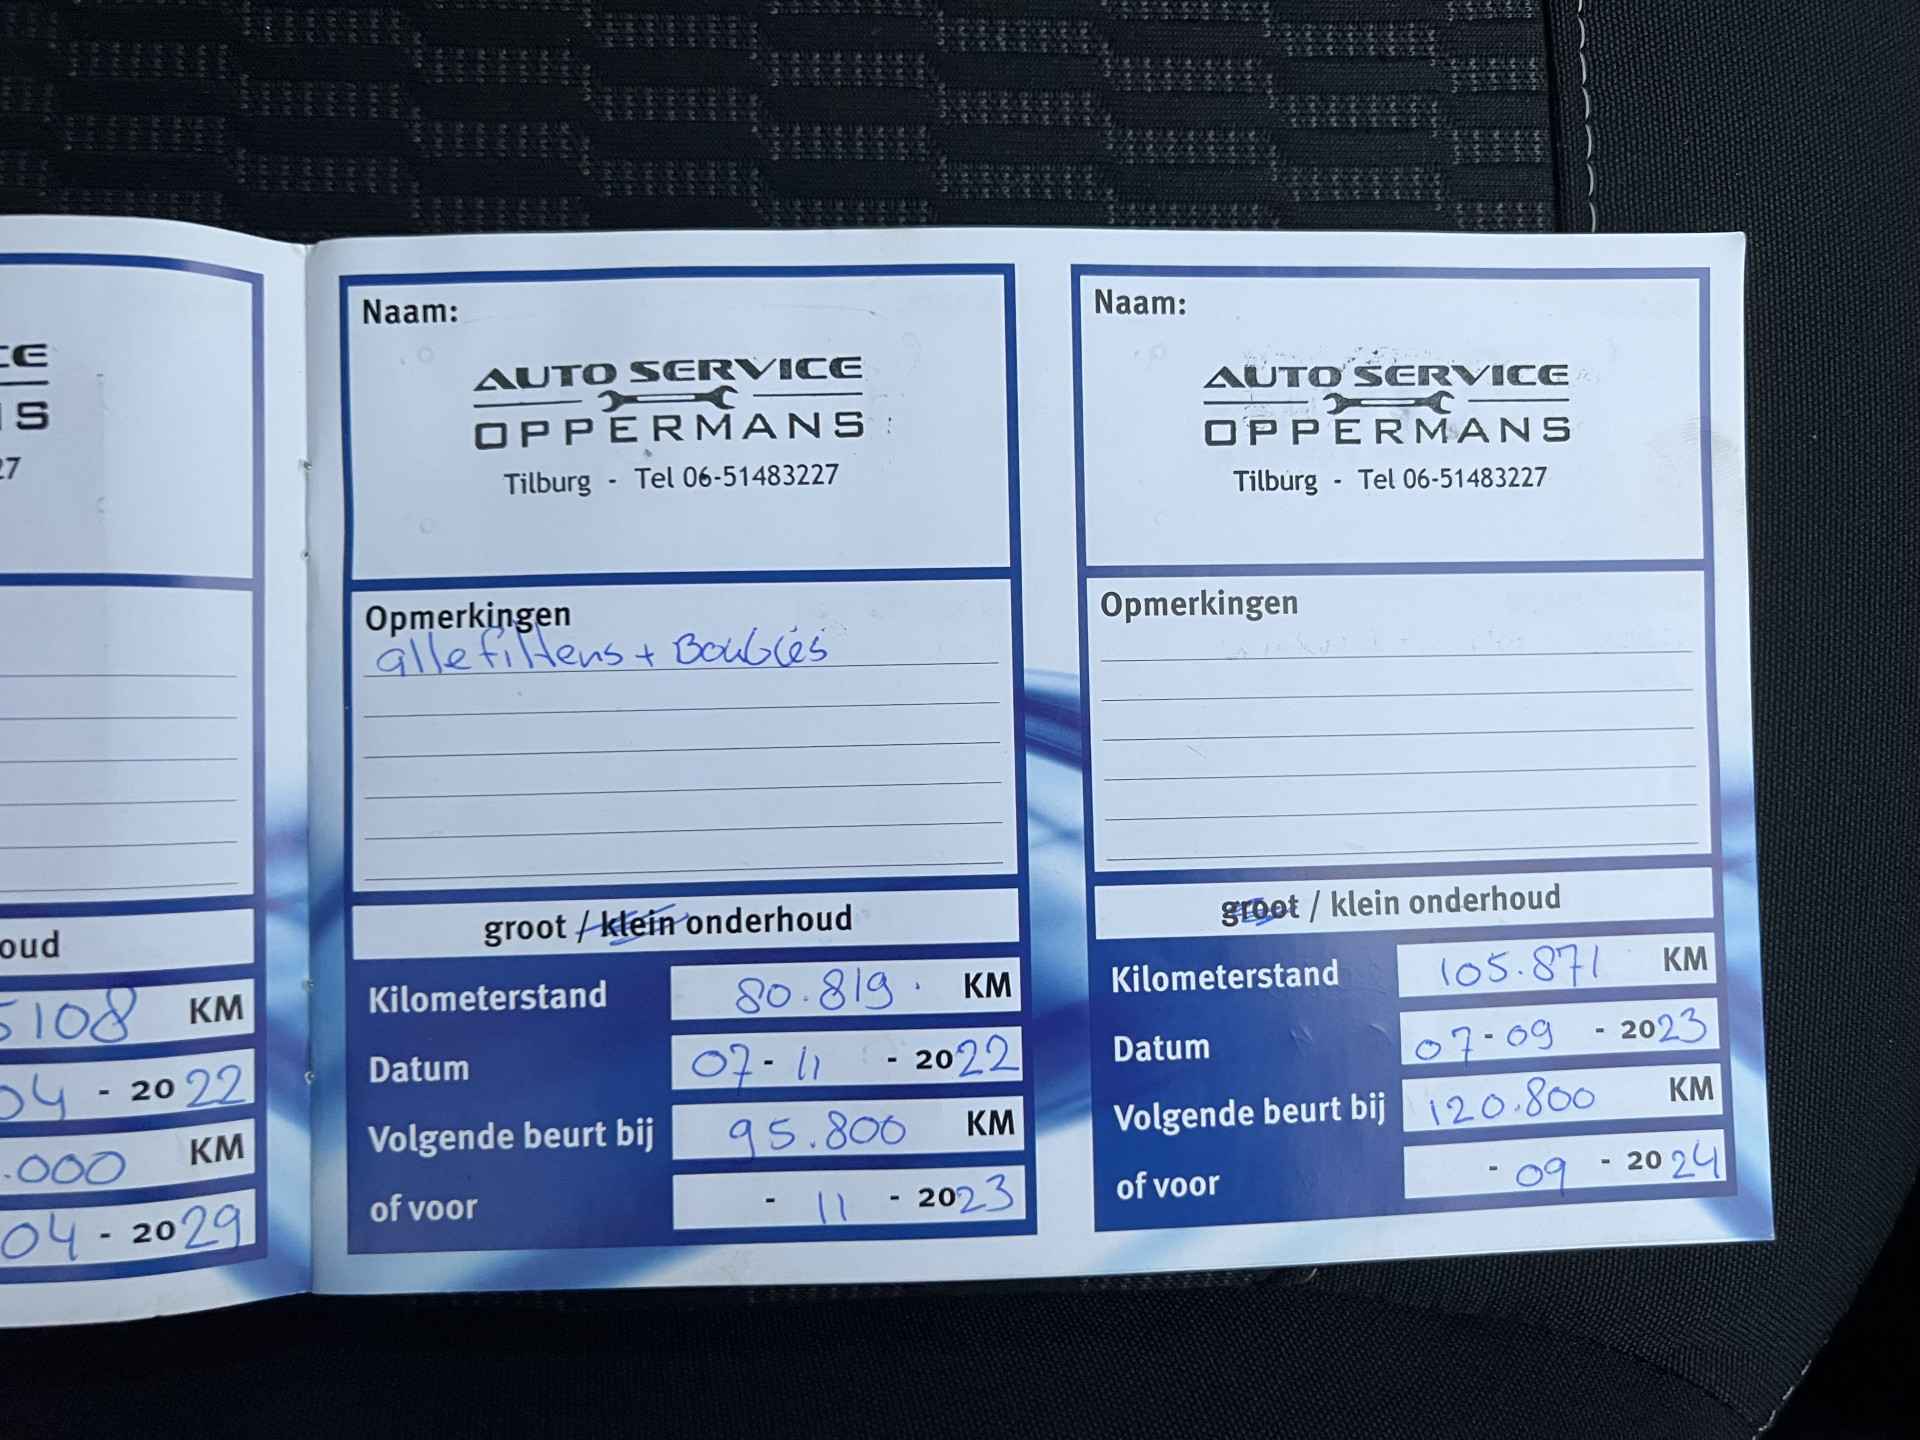 CE
NS
27
oud
5108 KM
04 - 2022
.000 KM
04 - 2029
Naam:
AUTO SERVICE
OPPERMANS
Tilburg - Tel 06-51483227
Opmerkingen
alle filters + Bougies
groot / klein onderhoud
Kilometerstand 80.819. KM
Datum 07-11 - 2022
Volgende beurt bij 95.800 KM
of voor - 11 - 2023
Naam:
AUTO SERVICE
OPPERMANS
Tilburg - Tel 06-51483227
Opmerkingen
groot / klein onderhoud
Kilometerstand 105.871 KM
Datum 07-09 - 2023
Volgende beurt bij 120.800 KM
of voor - 09 - 2024